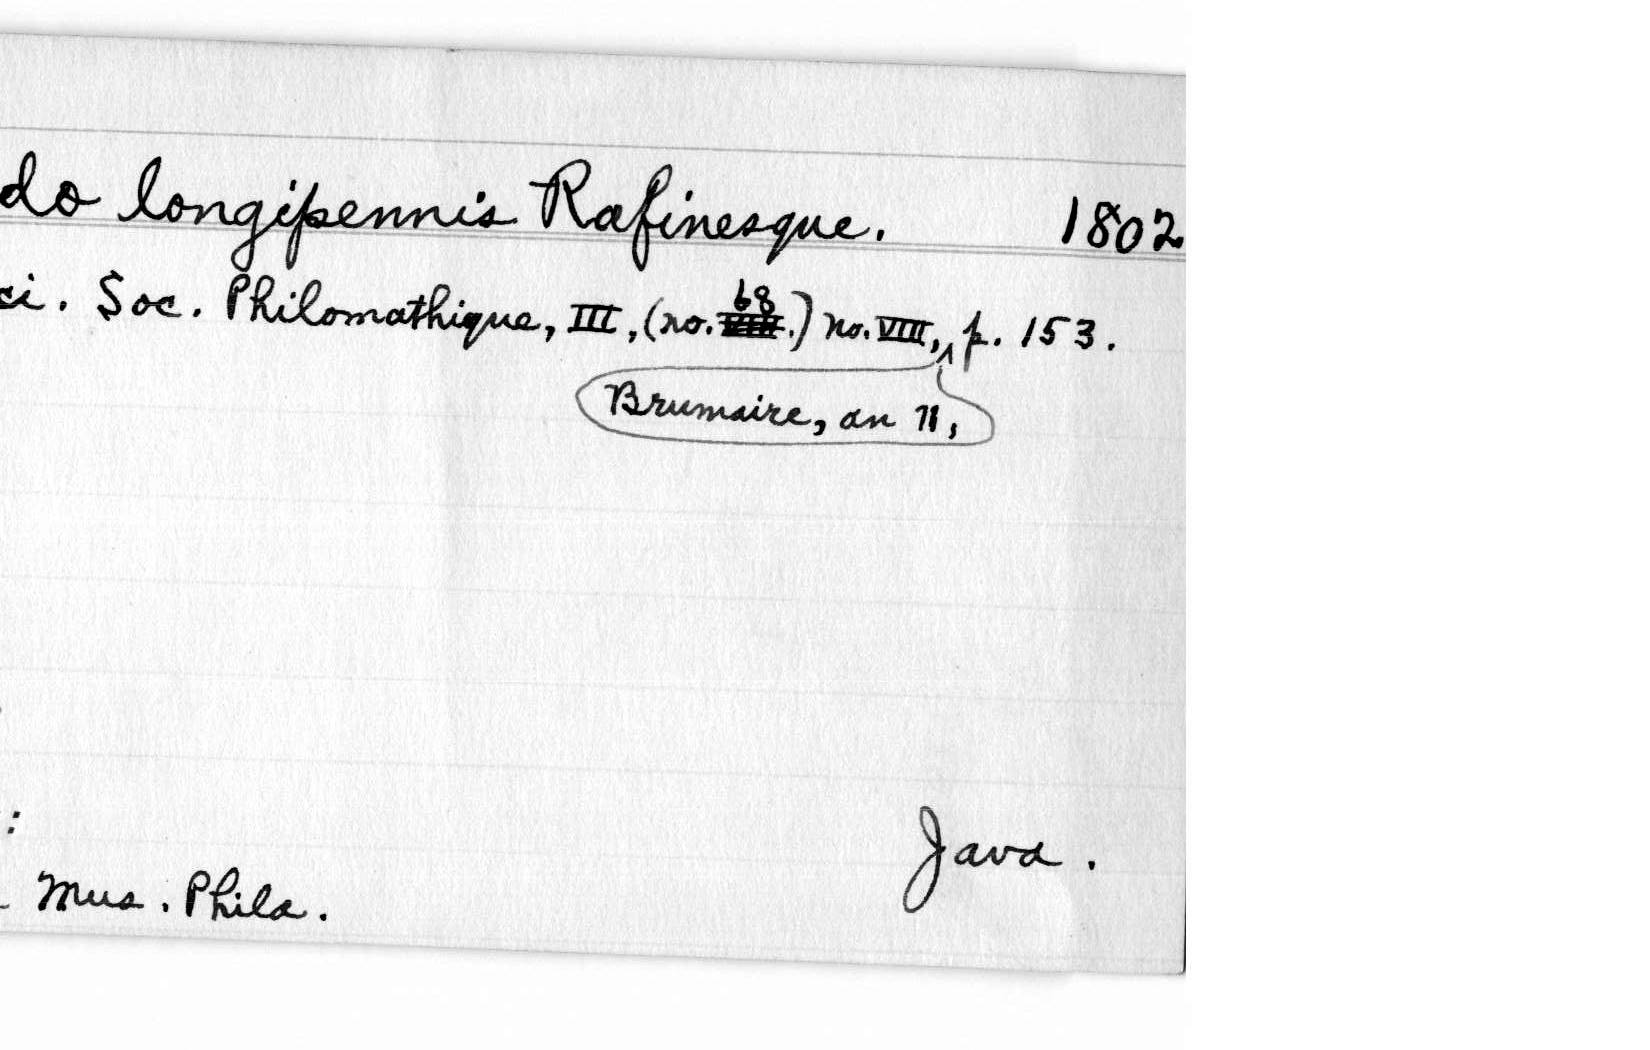 do longipennis Rafinesque. 1802
ci. Soc. Philomathique, III, (no. 68.) no. VIII, p. 153.
Brumaire, an 11,
:
Java.
Mus. Phila.